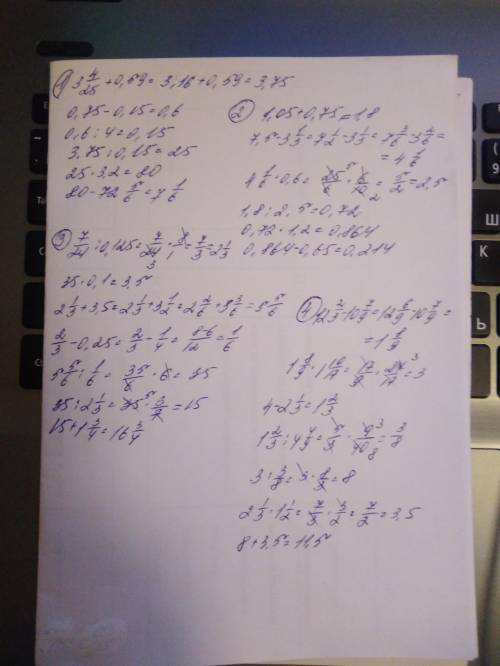 ① 3 4/25 + 0,59 = 3,16 + 0,59 = 3,75
0,75 - 0,15 = 0,6
0,6 : 4 = 0,15
3,75 : 0,15 = 25
25 · 3,2 = 80
80 - 72 5/6 = 7 1/6
② 1,05 + 0,75 = 1,8
7,5 - 3 1/3 = 7 1/2 - 3 1/3 = 7 3/6 - 3 2/6 =
= 4 1/6
4 1/6 · 0,6 = 25/6 · 6/10 = 5/2 = 2,5
1,8 : 2,5 = 0,72
0,72 · 1,2 = 0,864
0,864 - 0,65 = 0,214
③ 7/24 : 0,125 = 7/24 · 8/1 = 7/3 = 2 1/3
35 · 0,1 = 3,5
2 1/3 + 3,5 = 2 1/3 + 3 1/2 = 2 2/6 + 3 3/6 = 5 5/6
2/3 - 0,25 = 2/3 - 1/4 = 8-6/12 = 1/6
5 5/6 : 1/6 = 35/6 · 6 = 35
35 : 2 1/3 = 35 · 3/7 = 15
15 + 1 3/4 = 16 3/4
④ 12 2/3 - 10 7/9 = 12 6/9 - 10 7/9 =
= 1 8/9
1 8/9 · 1 10/17 = 17/9 · 27/17 = 3
4 - 2 1/3 = 1 2/3
1 2/3 : 4 4/9 = 5/3 · 9/40 = 3/8
3 : 3/8 = 3 · 8/3 = 8
2 1/3 · 1 1/2 = 7/3 · 3/2 = 7/2 = 3,5
8 + 3,5 = 11,5